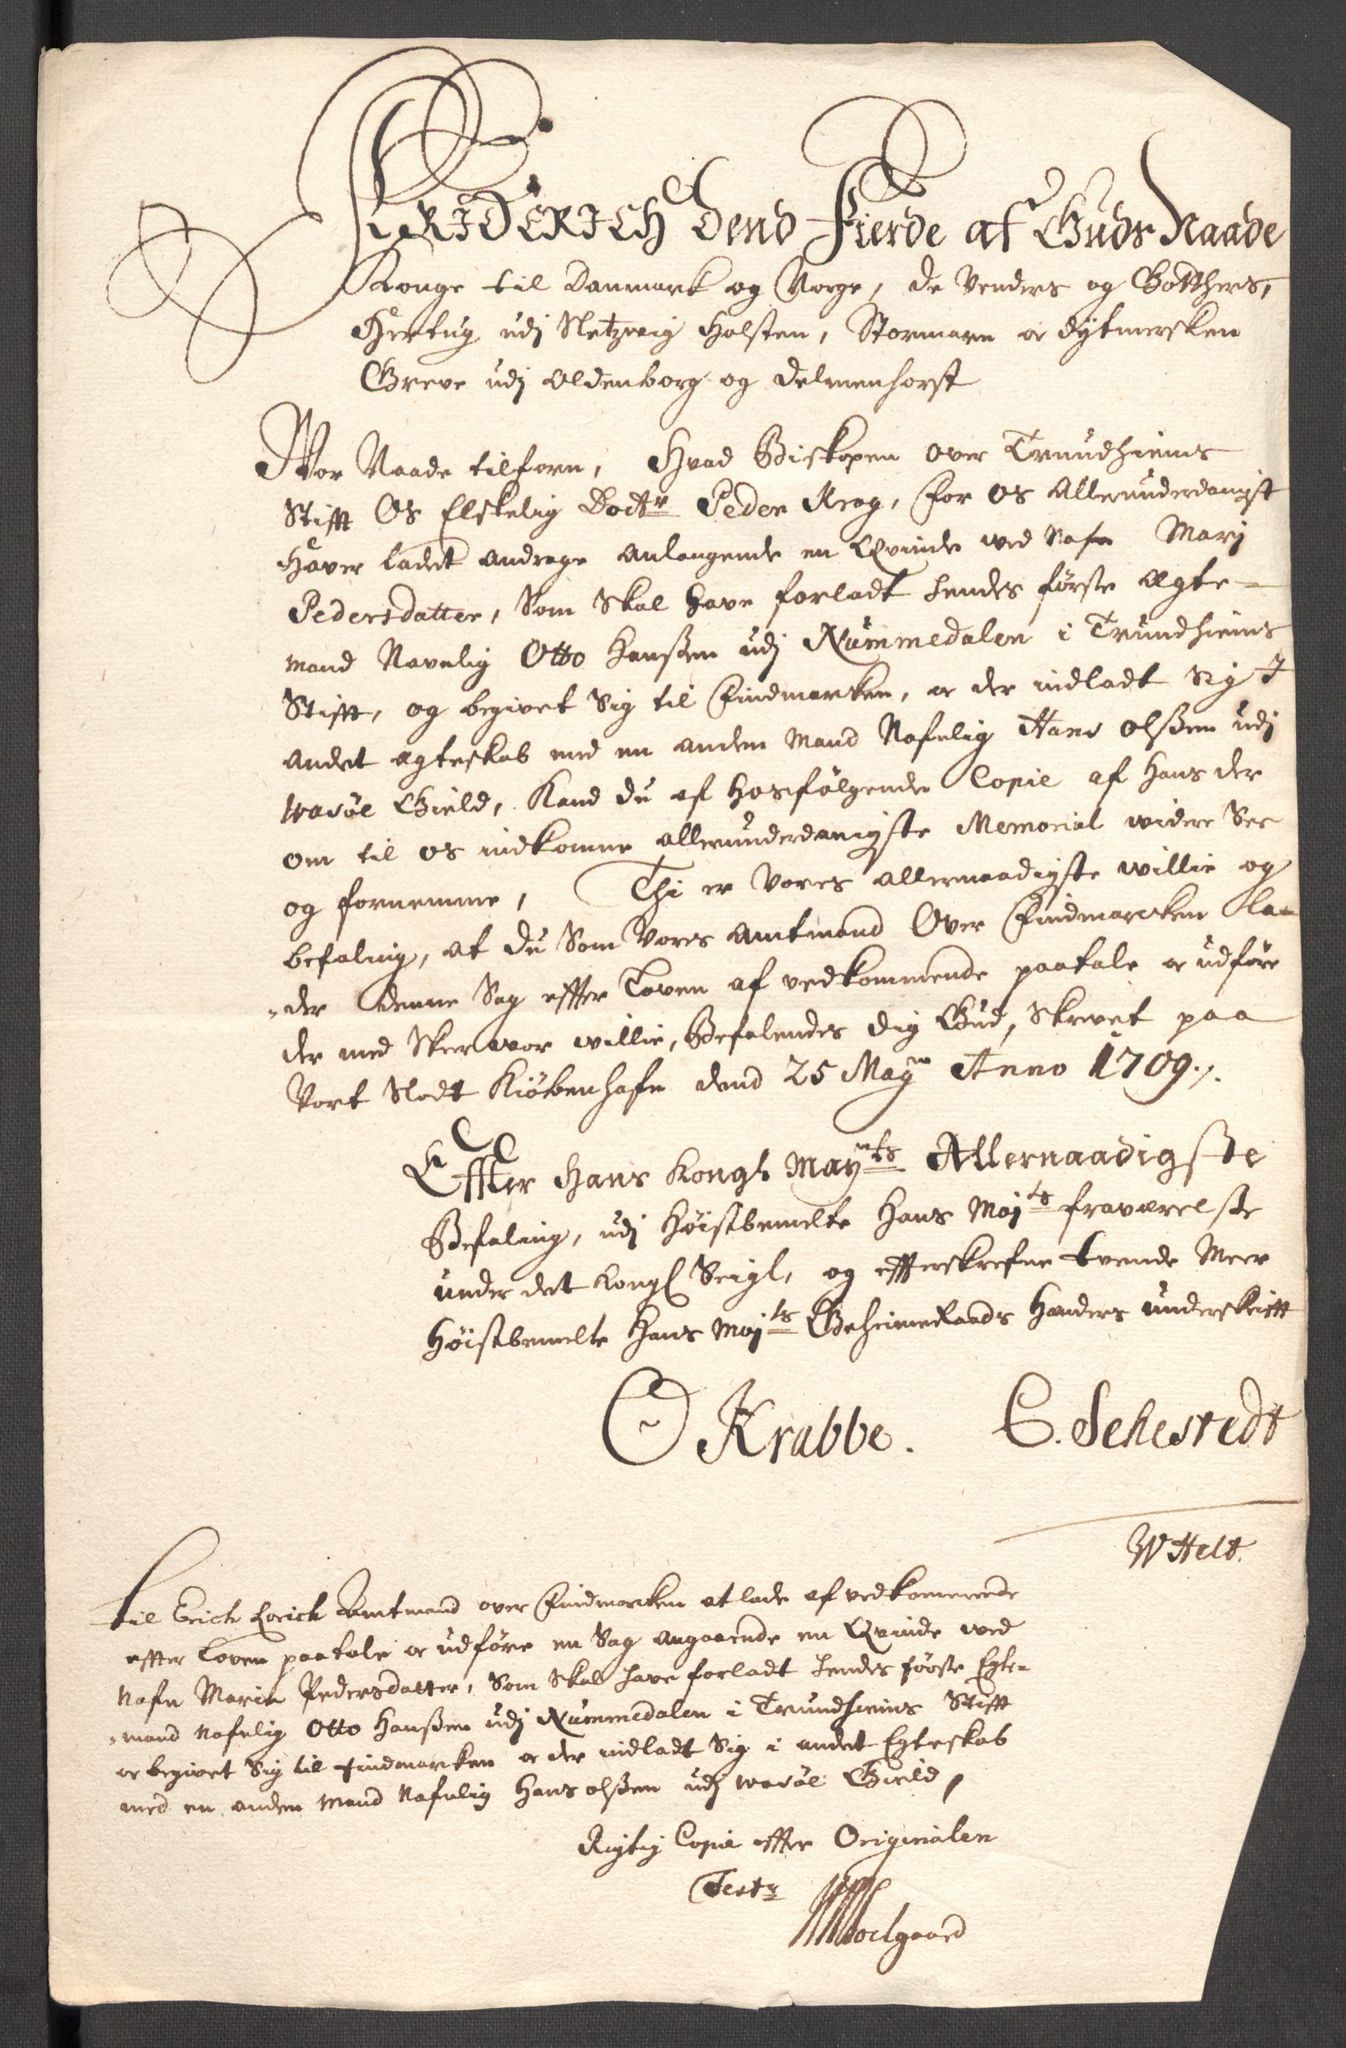 FRIDERICH Dend Fierde af Guds Naade
Konge til Danmark og Norge, de Venders og Gotthers,
Hertug udj Sletzvig Holsten, Stormarn oc Dytmersken
Greve udj Oldenborg og Delmenhorst
Wor Naade tilforn, Hvad Biskopen over Trundhiems
Stifft Os Elskelig Doctr Peder Krog, for os Allerunderdanigst
hafver ladet andrage anlangende en Qvinde ved Nafn Marj
Pedersdatter, som skal have forladt hendes første Ægte-
mand Navnlig Otto Hanßen udj Nummedalen i Trundhiems
Stifft, og begivet sig til Findmarken, oc der indladt sig J
andet ægteskab med en anden Mand Nafnlig Hans Olßen udj
Wasøe Gield, Kand du af hosfølgende Copie af hans der
om til os indkomne allerunderdanigste Memorial widere See
og fornemme, Thi er Vores allernaadigste willie og
befaling, at du som Vores Amtmand Over Findmarcken la-
-der denne Sag effter Loven af vedkommende paatale oc udføre
der med skeer wor willie, Befalendes dig Gud, Skrevet paa
Vort Slodt Kiøbenhafn dend 25 May Anno 1709.
Effter Hans Kongl. Mayts Allernaadigste
Befaling, udj Høistbemelte Hans Majts fraværelße
under det Kongl Seigl, og effterskrefne tvende Meer
Høistbemelte Hans Majts Geheimeraads Hænders underskrifft
O Krabbe. C. Sehestedt
W Helt.
Til Erich Lorich Amtmand over Findmarken at lade af vedkommende
effter Loven paatale oc udføre en Sag angaaende en Qvinde ved
Nafn Marin Pedersdatter, som skal have forladt hendes første Egte-
-mand Nafnlig Otto Hanßen udj Nummedalen i Trundhiems Stifft
oc begivet sig til Findmarken oc der indladt sig i andet Egteskab
med en anden Mand Nafnlig Hans Olßen udj Wasøe Gield,
Rigtig Copie effter Originalen
Test: